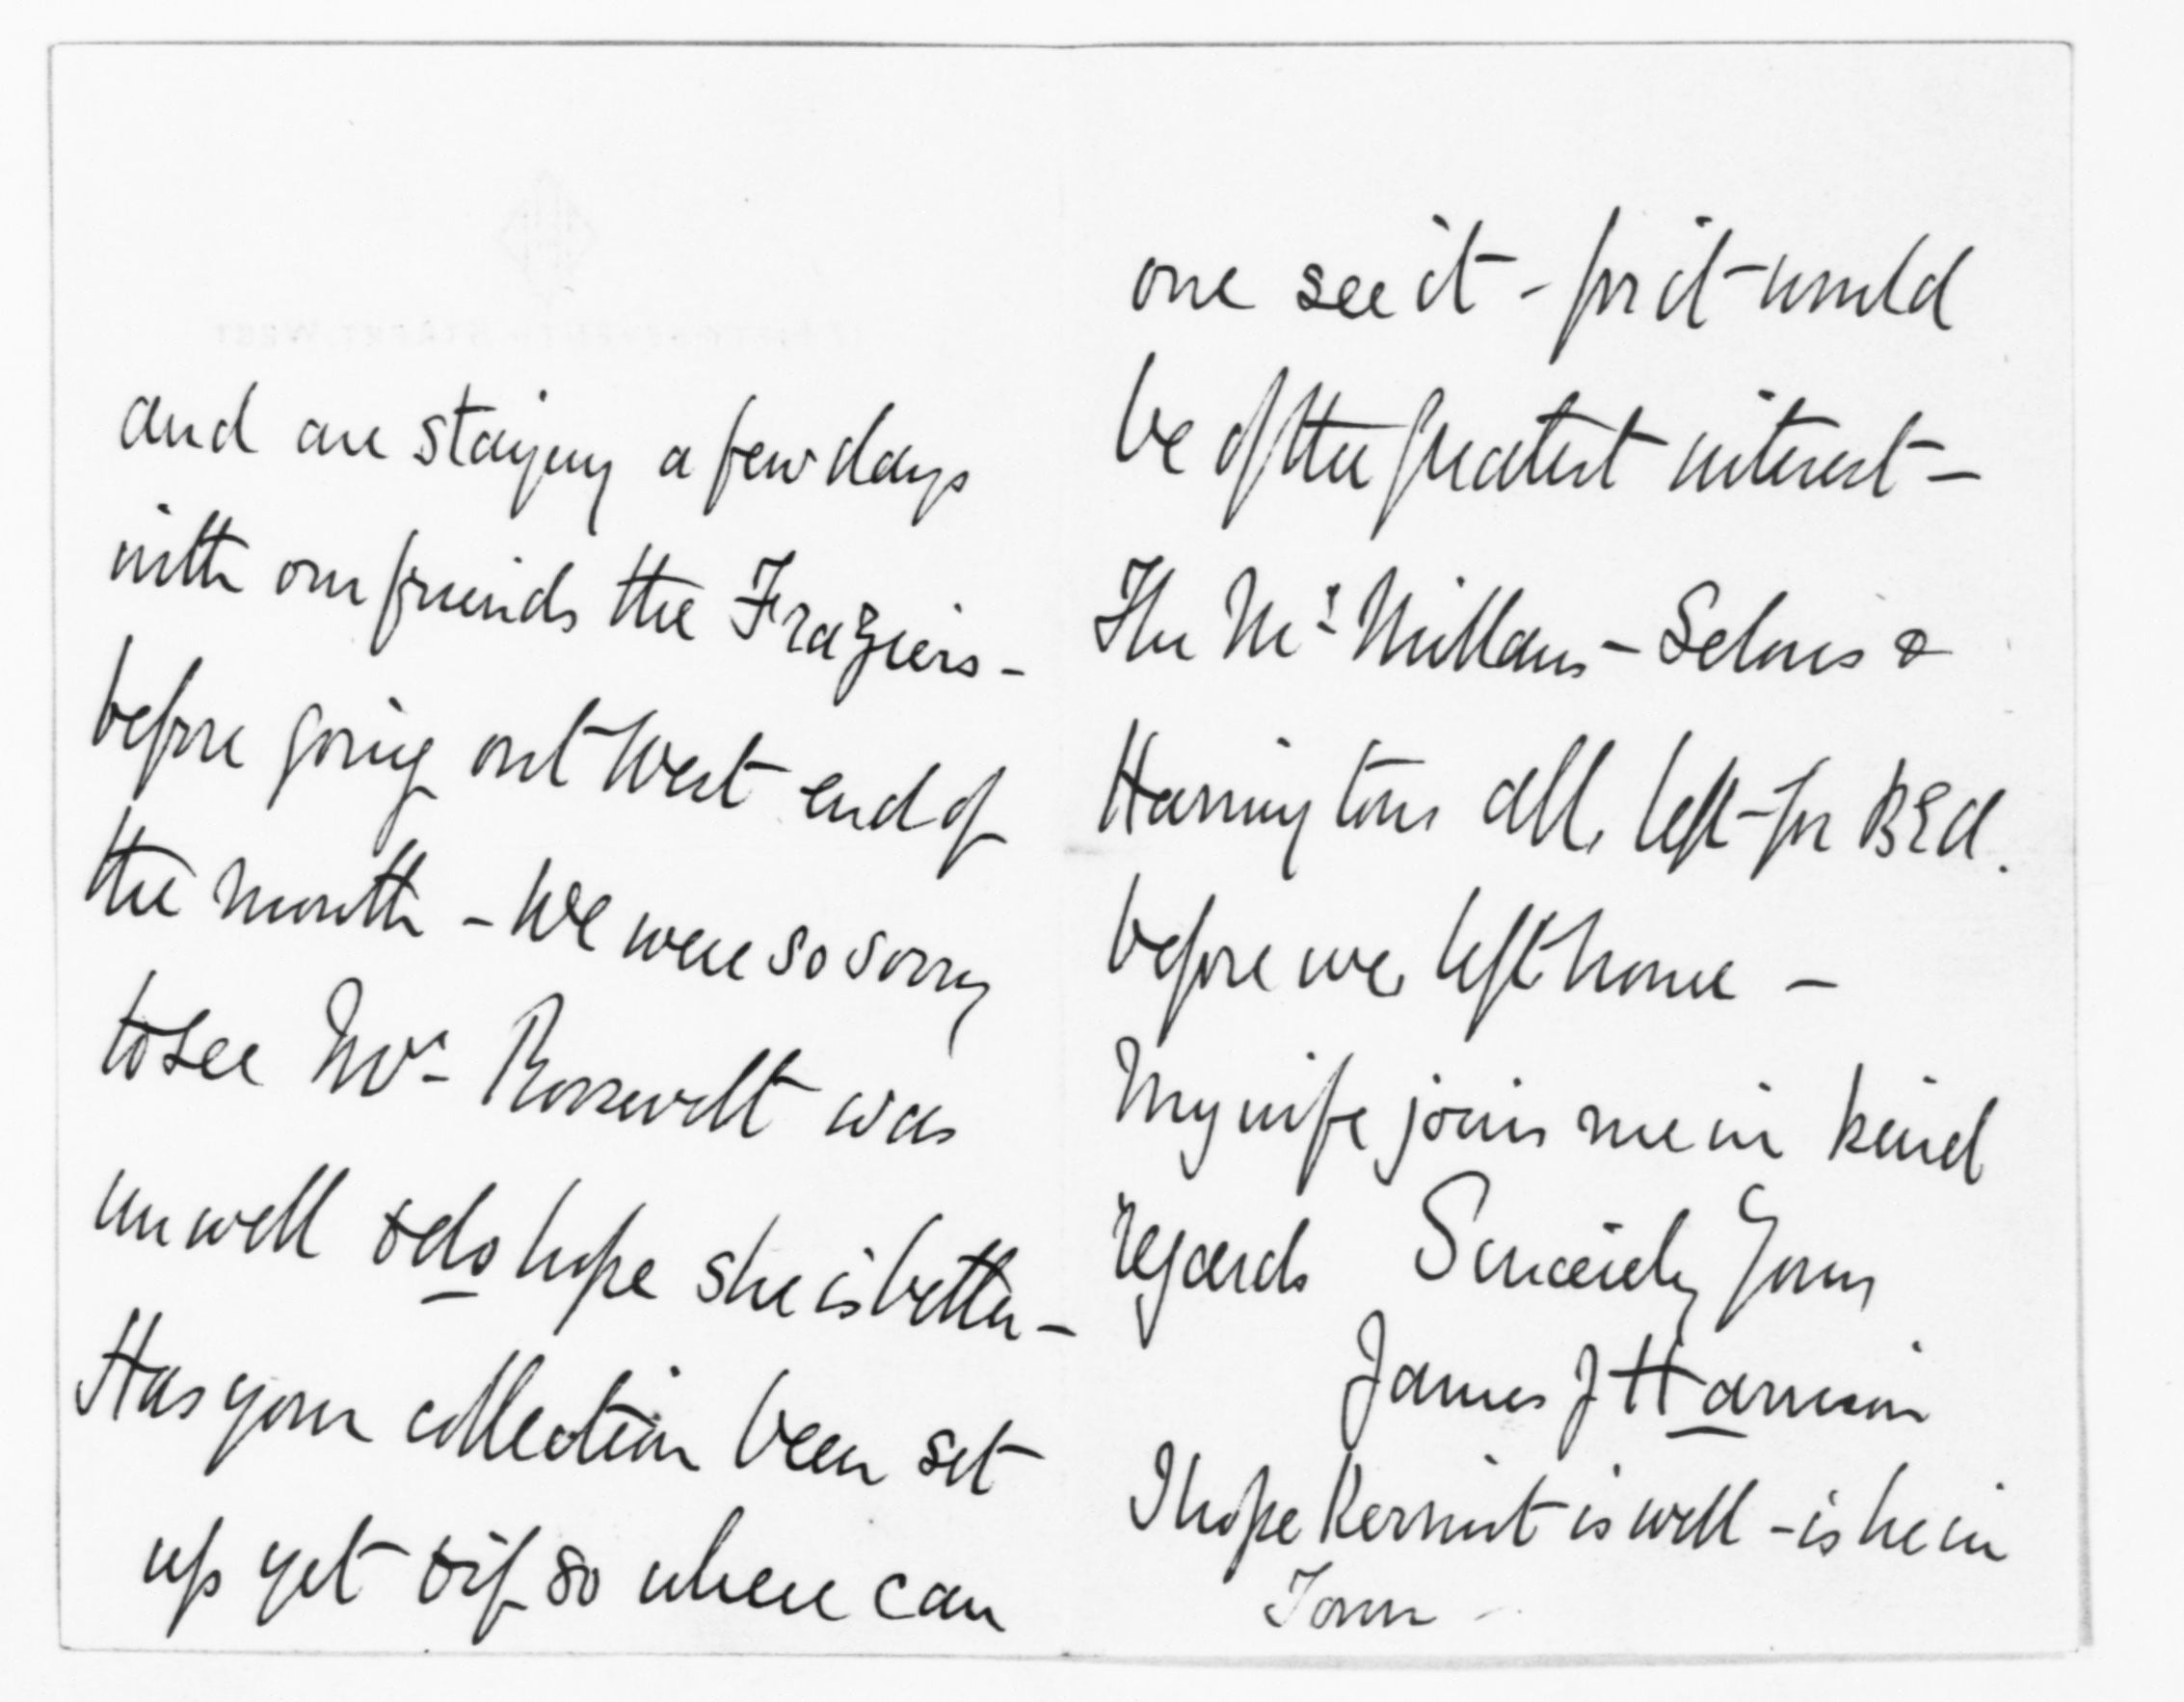 and are staying a few days
with our friends the Fraziers -
before going out West end of
the month - We were so sorry
to see Mrs. Roosevelt was
unwell & do hope she is better -
Has your collection been set
up yet & if so where can
one see it - for it would
be of the greatest interest -
The Mc Millans - Selous &
Harringtons all, left for B E A.
before we left home -
My wife joins me in kind
regards Sincerely Yours
James J Harrison
I hope Kermit is well - is he in
Town -